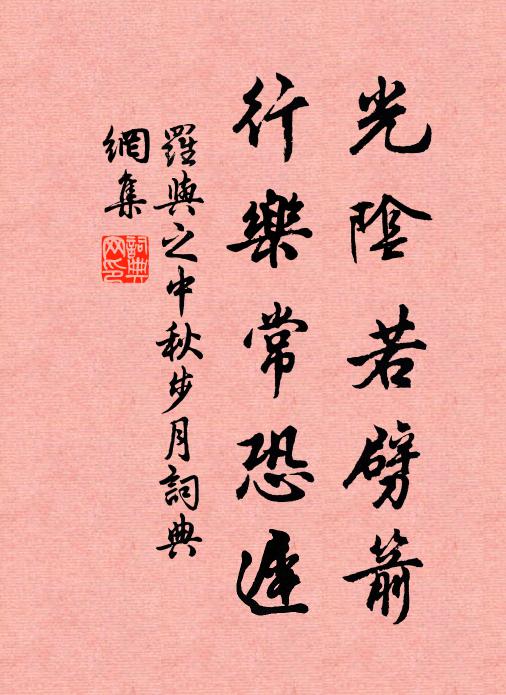 光陰若劈箭
行樂常恐遲
羅與之中秋步月詞典
網集
詞典
网印